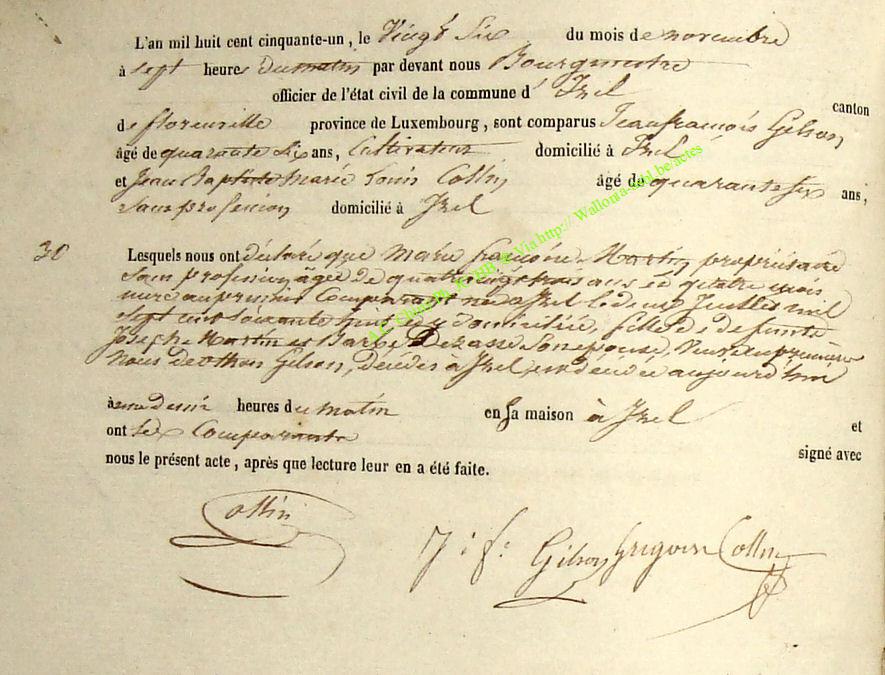 L'an mil huit cent cinquante-un, le Vingt Six du mois de novembre
à sept heures du matin par devant nous Bourgmestre
officier de l'état civil de la commune d' Izel canton
de florenville province de Luxembourg, sont comparus Jean françois Gilson
âgé de quarante Six ans, Cultivateur domicilié à Izel
et Jean Baptiste Marie Louis Collin âgé de quarante six ans,
Sans profession domicilié à Izel
30 Lesquels nous ont déclaré que Marie françoise Martin propriétaire
Sans profession âgée de quatre vingt trois ans et quatre mois
mère au premier Comparant née à Izel le deux Juillet mil
sept cent soixante huit et y domiciliée, fille de défunts
Joseph Martin et Barbe son épouse, Veuve en premières
Noces de Gilson, décédée à Izel, est décédée aujourd'hui
à une demie heures du matin en sa maison à Izel et
ont les Comparants signé avec
nous le présent acte, après que lecture leur en a été faite.
Collin
J: f: Gilson Grégoire Collin
Via http:// .be/actes